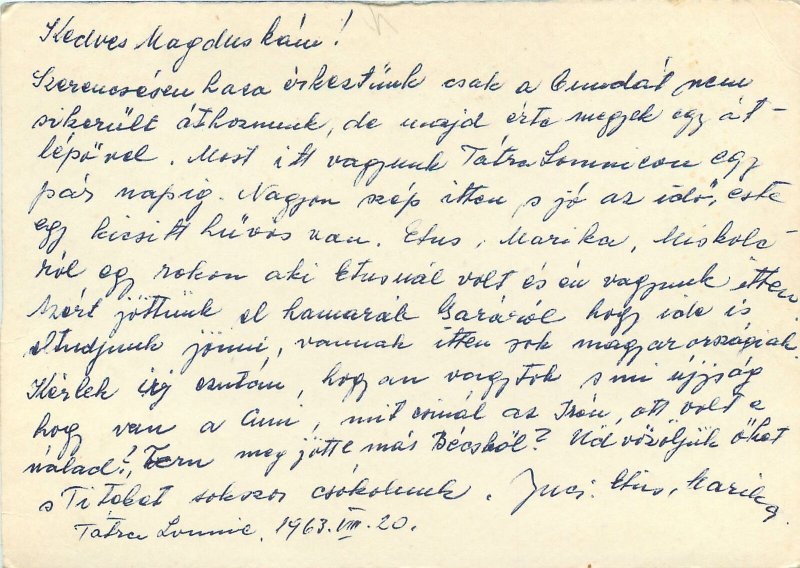 Kedves Magduskám!
Szerencsésen haza érkeztünk csak a Bundát nem
sikerült áthoznunk, de majd érte megyek egy át-
lépővel. Most itt vagyunk Tátra Lomnicon egy
pár napig. Nagyon szép itten s jó az idő, este
egy kicsitt hüvös van. Etus, Marika, Miskolc-
ról egy rokon aki Etusnál volt és én vagyunk itten.
Azért jöttünk el hamarább Garáról hogy ide is
eltudjunk jönni, vannak itten sok magyarországiak.
Kérlek irj ezután, hogyan vagytok s mi újság
hogy van a Cuni, mit csinál az Irén, ott volt e
nálad?, Fern meg jött e más Bécsből? Üdvözöljük őket
s Titeket sokszor csókolunk. Juci. Etus, Marika
Tátra Lomnic, 1963. VIII. 20.